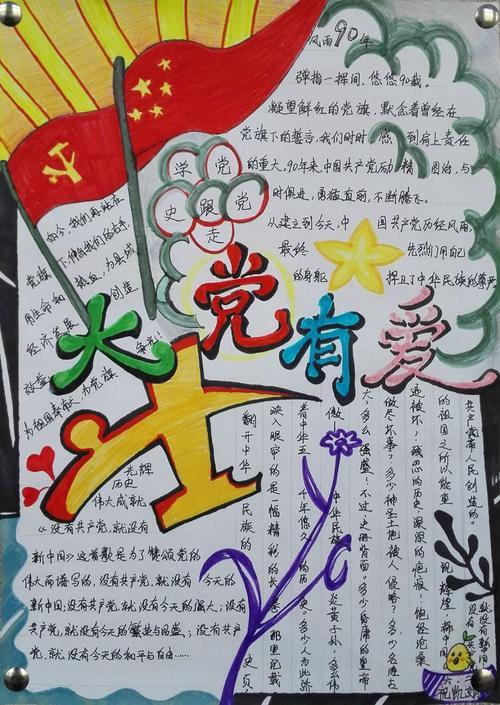 风雨90年
弹指一挥间，悠悠90载。
凝望鲜红的党旗，默念着曾经在
党旗下的誓言，我们时时感到肩上责任
的重大。90年来，中国共产党励精图治，与
时俱进，勇往直前，不断腾飞。
从建立到今天，中国共产党历经风雨，
最终 先烈们用自己
的身躯 捍卫了中华民族的尊严
学党
史跟党
走
如今，我们再站在
党旗下，伸出我们的右手，
用生命和热血，为县城
经济发展创造
效益，为党旗争光！
为祖国奉献，
大党有爱
光辉
历史
伟大成就
《没有共产党，就没有
新中国》这首歌是为了赞颂党的
伟大而谱写的，没有共产党，就没有今天的
新中国；没有共产党，就没有今天的强大；没有
共产党，就没有今天的繁荣与昌盛；没有共产
党，就没有今天的和平与自由……
共产党带人民创造的。
的祖国之所以能重
这被坏？残忍的历史，深深的疮痍！饱经沧桑
做尽坏事？多少神圣土地被人侵吟？多少名胜古
大，多么强盛！不过，史册背面。多少昏庸的皇帝
做—中华民族，炎黄子孙，多么伟
着中华五千年悠久的历史。多少人为此骄
映入眼帘的是一幅精彩的长卷，那里记载
翻开中华民族的史页，